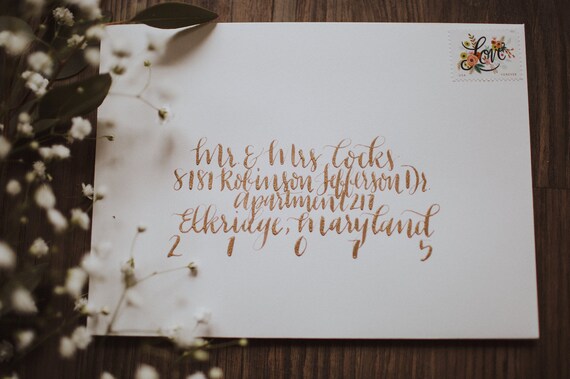 Love
Mr & Mrs Cocks
8181 Robinson Jefferson Dr
Apartment 217
Elkridge, Maryland
2 1 0 7 5